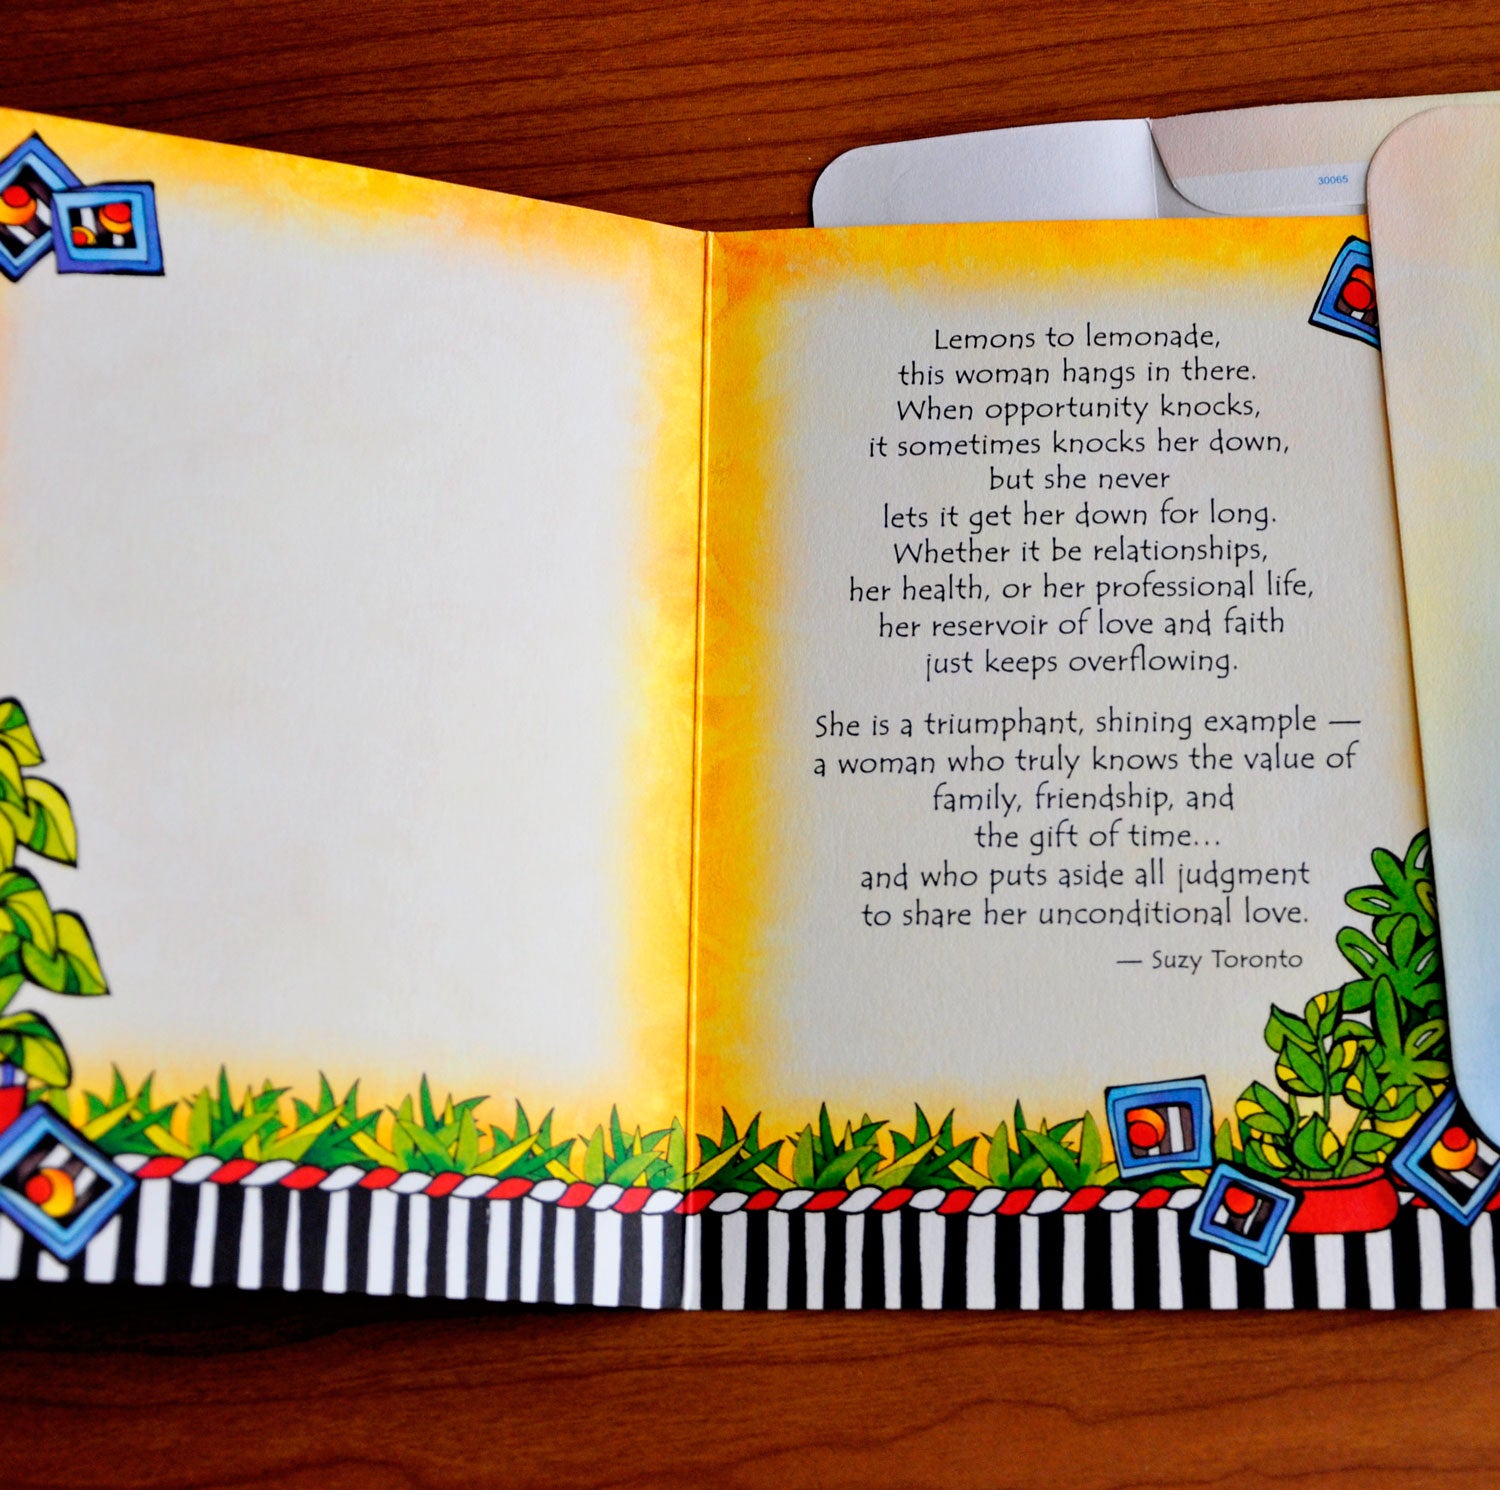 30065
Lemons to lemonade,
this woman hangs in there.
When opportunity knocks,
it sometimes knocks her down,
but she never
lets it get her down for long.
Whether it be relationships,
her health, or her professional life,
her reservoir of love and faith
just keeps overflowing.
She is a triumphant, shining example —
a woman who truly knows the value of
family, friendship, and
the gift of time...
and who puts aside all judgment
to share her unconditional love.
— Suzy Toronto